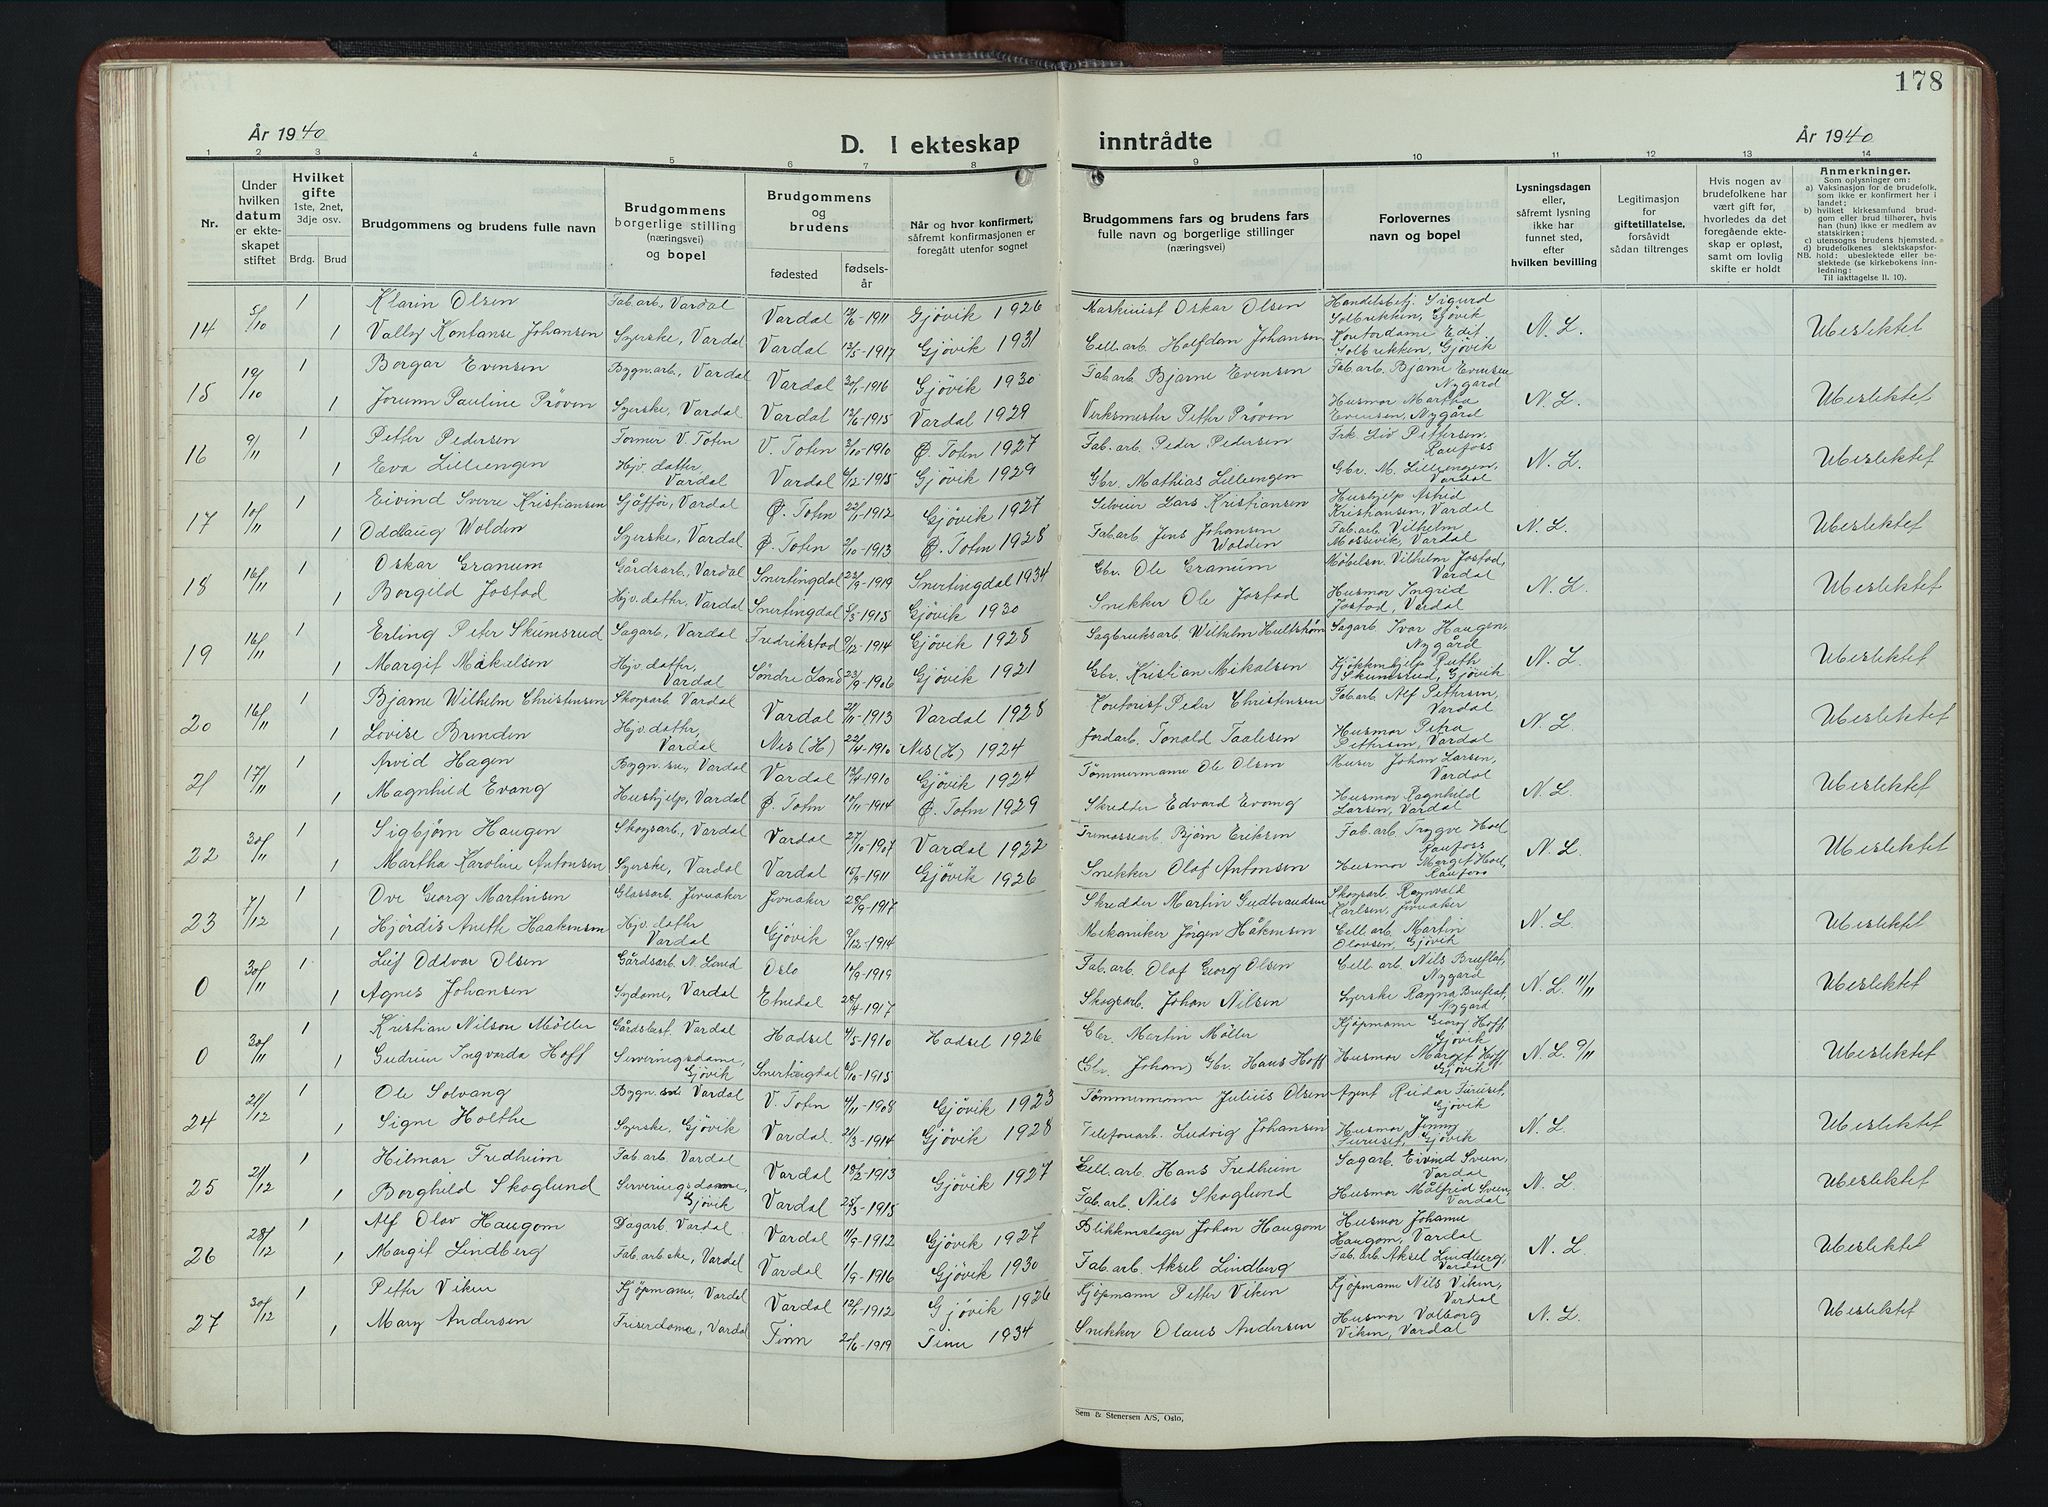 178
År 1940
D. I ekteskap inntrådte
År 1940
1 2 3 4 5 6 7 8 9 10 11 12 13 14
Nr.
Under hvilken datum er ekteskapet stiftet
Hvilket gifte 1ste, 2net, 3dje osv.
Brdg. Brud
Brudgommens og brudens fulle navn
Brudgommens borgerlige stilling (næringsvei) og bopel
Brudgommens og brudens
fødested
fødselsår
Når og hvor konfirmert, såfremt konfirmasjonen er foregått utenfor sognet
Brudgommens fars og brudens fars fulle navn og borgerlige stillinger (næringsvei)
Forlovernes navn og bopel
Lysningsdagen eller, såfremt lysning ikke har funnet sted, efter hvilken bevilling
Legitimasjon for giftetillatelse, forsåvidt sådan tiltrenges
Hvis nogen av brudefolkene har vært gift før, hvorledes da det foregående ekteskap er opløst, samt om lovlig skifte er holdt
Anmerkninger.
Som oplysninger om:
a) Vaksinasjon for de brudefolk, som ikke er konfirmert her i landet;
b) hvilket kirkesamfund brudgom eller brud tilhører, hvis han (hun) ikke er medlem av statskirken;
c) utensogns brudens hjemsted.
d) brudefolkenes slektskapsforhold: ubeslektede eller beslektede (se kirkebokens innledning:
NB. Til iakttagelse II. 10).
14 5/10 1 Klarin Olsen Fab.arb., Vardal Vardal 12/6-1911 Gjövik 1926 Maskinist Oskar Olsen Handelsbetj. Sigurd Solbrekken, Gjövik N. L. Ubeslektet
1 Vally Konstanse Johansen Syerske, Vardal Vardal 13/5-1917 Gjövik 1931 Cell.arb. Halfdan Johansen Kontordame Edit Solbrekken, Gjövik
15 19/10 1 Borgar Evensen Bygn.arb., Vardal Vardal 30/1-1916 Gjövik 1930 Fab.arb. Bjarne Evensen Fab.arb. Bjarne Evensen Nygard N. L. Ubeslektet
1 Jorunn Pauline Pröven Syerske, Vardal Vardal 12/6-1915 Vardal 1929 Verksmester Petter Pröven Husmor Martha Evensen, Nygård
16 9/11 1 Petter Pedersen Former V. Toten V. Toten 3/10-1910 Ø. Toten 1927 Fab.arb. Peder Pedersen Frk. Liv Pettersen Raufoss N. L. Ubeslektet
1 Eva Lilleengen Hjv. datter, Vardal Vardal 6/12-1915 Gjövik 1929 Gbr. Mathias Lilleengen Gbr. M. Lilleengen, Vardal
17 10/11 1 Eivind Sverre Kristiansen Sjåffør, Vardal Ø. Toten 22/11-1912 Gjövik 1927 Lars Kristiansen Hushjelp Astrid Kristiansen, Vardal N. L. Ubeslektet
1 Oddlaug Wolden Syerske, Vardal Ø. Toten 2/10-1913 Ø. Toten 1928 Fab.arb. Jens Johansen Wolden Fab.arb. Vilhelm Mossevik, Vardal
18 16/11 1 Oskar Granum Gårdsarb., Vardal Snertingdal 22/9-1919 Snertingdal 1934 Gbr. Ole Granum Møbelsn. Vilhelm Jostad, Vardal N. L. Ubeslektet
1 Borgild Jostad Hjv. datter, Vardal Snertingdal 6/5-1915 Gjövik 1930 Snekker Ole Jostad Husmor Ingrid Jostad, Vardal
19 16/11 1 Erling Peter Skumsrud Sagarb., Vardal Fredrikstad 9/12-1914 Gjövik 1928 Sagbruksarb. Wilhelm Hultstrøm Sagarb. Ivar Haugen, Nygård N. L. Ubeslektet
1 Margit Mikalsen Hjv. datter, Vardal Söndre Land 23/9-1906 Gjövik 1921 Gbr. Kristian Mikalsen Kjökkenhjelp Ruth Skumsrud, Gjövik
20 16/11 1 Bjarne Wilhelm Christensen Skogsarb. Vardal Vardal 21/11-1913 Vardal 1928 Kontorist Peder Christensen Fab.arb. Alf Pettersen, Vardal N. L. Ubeslektet
1 Lovise Brenden Hjv. datter, Vardal Nes (H) 22/4-1910 Nes (H) 1924 Jordarb. Tonald Taalesen Husmor Petra Pettersen, Vardal
21 17/11 1 Arvid Hagen Bygn.sn., Vardal Vardal 13/4-1910 Gjövik 1924 Tömmermann Ole Olsen Murer Johan Larsen, Vardal N. L. Ubeslektet
1 Magnhild Evang Hushjelp, Vardal Ø. Toten 10/11-1914 Ø. Toten 1929 Skredder Edvard Evang Husmor Ragnhild Larsen, Vardal
22 30/11 1 Sigbjörn Haugen Skogsarb., Vardal Vardal 27/10-1907 Vardal 1922 Tremassearb. Bjørn Eriksen Fab.arb. Trygve Hoel Raufoss N. L. Ubeslektet
1 Martha Karoline Antonsen Syerske, Vardal Vardal 15/9-1911 Gjövik 1926 Snekker Olaf Antonsen Husmor Margit Hoel, Raufoss
23 7/12 1 Ove Georg Martinsen Glassarb. Jevnaker Jevnaker 28/9-1917 Skredder Martin Gudbrandsen Skogsarb. Ragnvald Karlsen, Jevnaker N. L. Ubeslektet
1 Hjördis Anette Haakensen Hjv. datter Vardal Gjövik 9/12-1914 Mekaniker Jörgen Håkensen Cell.arb. Martin Olavsen, Gjövik
0 30/11 1 Leif Oddvar Olsen Gårdsarb. N. Land Oslo 10/9-1919 Fab.arb. Olaf Georg Olsen Cell.arb. Nils Bruflat, Nygard N. L. 11/11 Ubeslektet
1 Agnes Johansen Sydame, Vardal Etnedal 28/4-1917 Skogsarb. Johan Nilsen Syerske Ragna Bruflat, Nygard
0 30/11 1 Kristian Nilson Möller Gårdsbest. Vardal Hadsel 4/5-1910 Hadsel 1926 Gbr. Martin Möller Kjöpmann Georg Hoff, Gjövik N. L. 9/11 Ubeslektet
1 Gudrun Ingvarda Hoff Serveringsdame, Gjövik Snertingdal 6/10-1915 Gbr. Johan) Gbr. Hans Hoff Husmor Margit Hoff, Gjövik
24 21/12 1 Ole Solvang Bygn.sn. Vardal V. Toten 4/11-1908 Gjövik 1923 Tömmermann Julius Olsen Agent Reidar Furuset, Gjövik N. L. Ubeslektet
1 Signe Holthe Syerske, Gjövik Vardal 21/3-1914 Gjövik 1928 Telefonarb. Ludvig Johansen Husmor Jenny Furuset, Gjövik
25 21/12 1 Hilmar Fredheim Fab.arb. Vardal Vardal 18/2-1913 Gjövik 1927 Cell.arb. Hans Fredheim Sagarb. Eivind Sveen, Vardal N. L. Ubeslektet
1 Borghild Skoglund Serveringsdame, Gjövik Vardal 25/3-1915 Fab.arb. Nils Skoglund Husmor Målfrid Sveen, Vardal
26 28/12 1 Alf Olav Haugom Dagarb. Vardal Vardal 11/9-1912 Gjövik 1927 Blikkenslager Johan Haugom Husmor Johanne Haugom, Vardal N. L. Ubeslektet
1 Margit Lindberg Fab.arb.ske, Vardal Vardal 1/9-1916 Gjövik 1930 Fab.arb. Aksel Lindberg Fab.arb. Aksel Lindberg, Vardal
27 30/12 1 Petter Viken Kjöpmann, Vardal Vardal 12/1-1912 Gjövik 1926 Kjöpmann Petter Viken Kjöpmann Nils Viken, Vardal N. L. Ubeslektet
1 Mary Andersen Friserdame, Vardal Tinn 21/6-1919 Tinn 1934 Snekker Olaus Andersen Husmor Valborg Viken, Vardal
Sem & Stenersen A/S, Oslo.